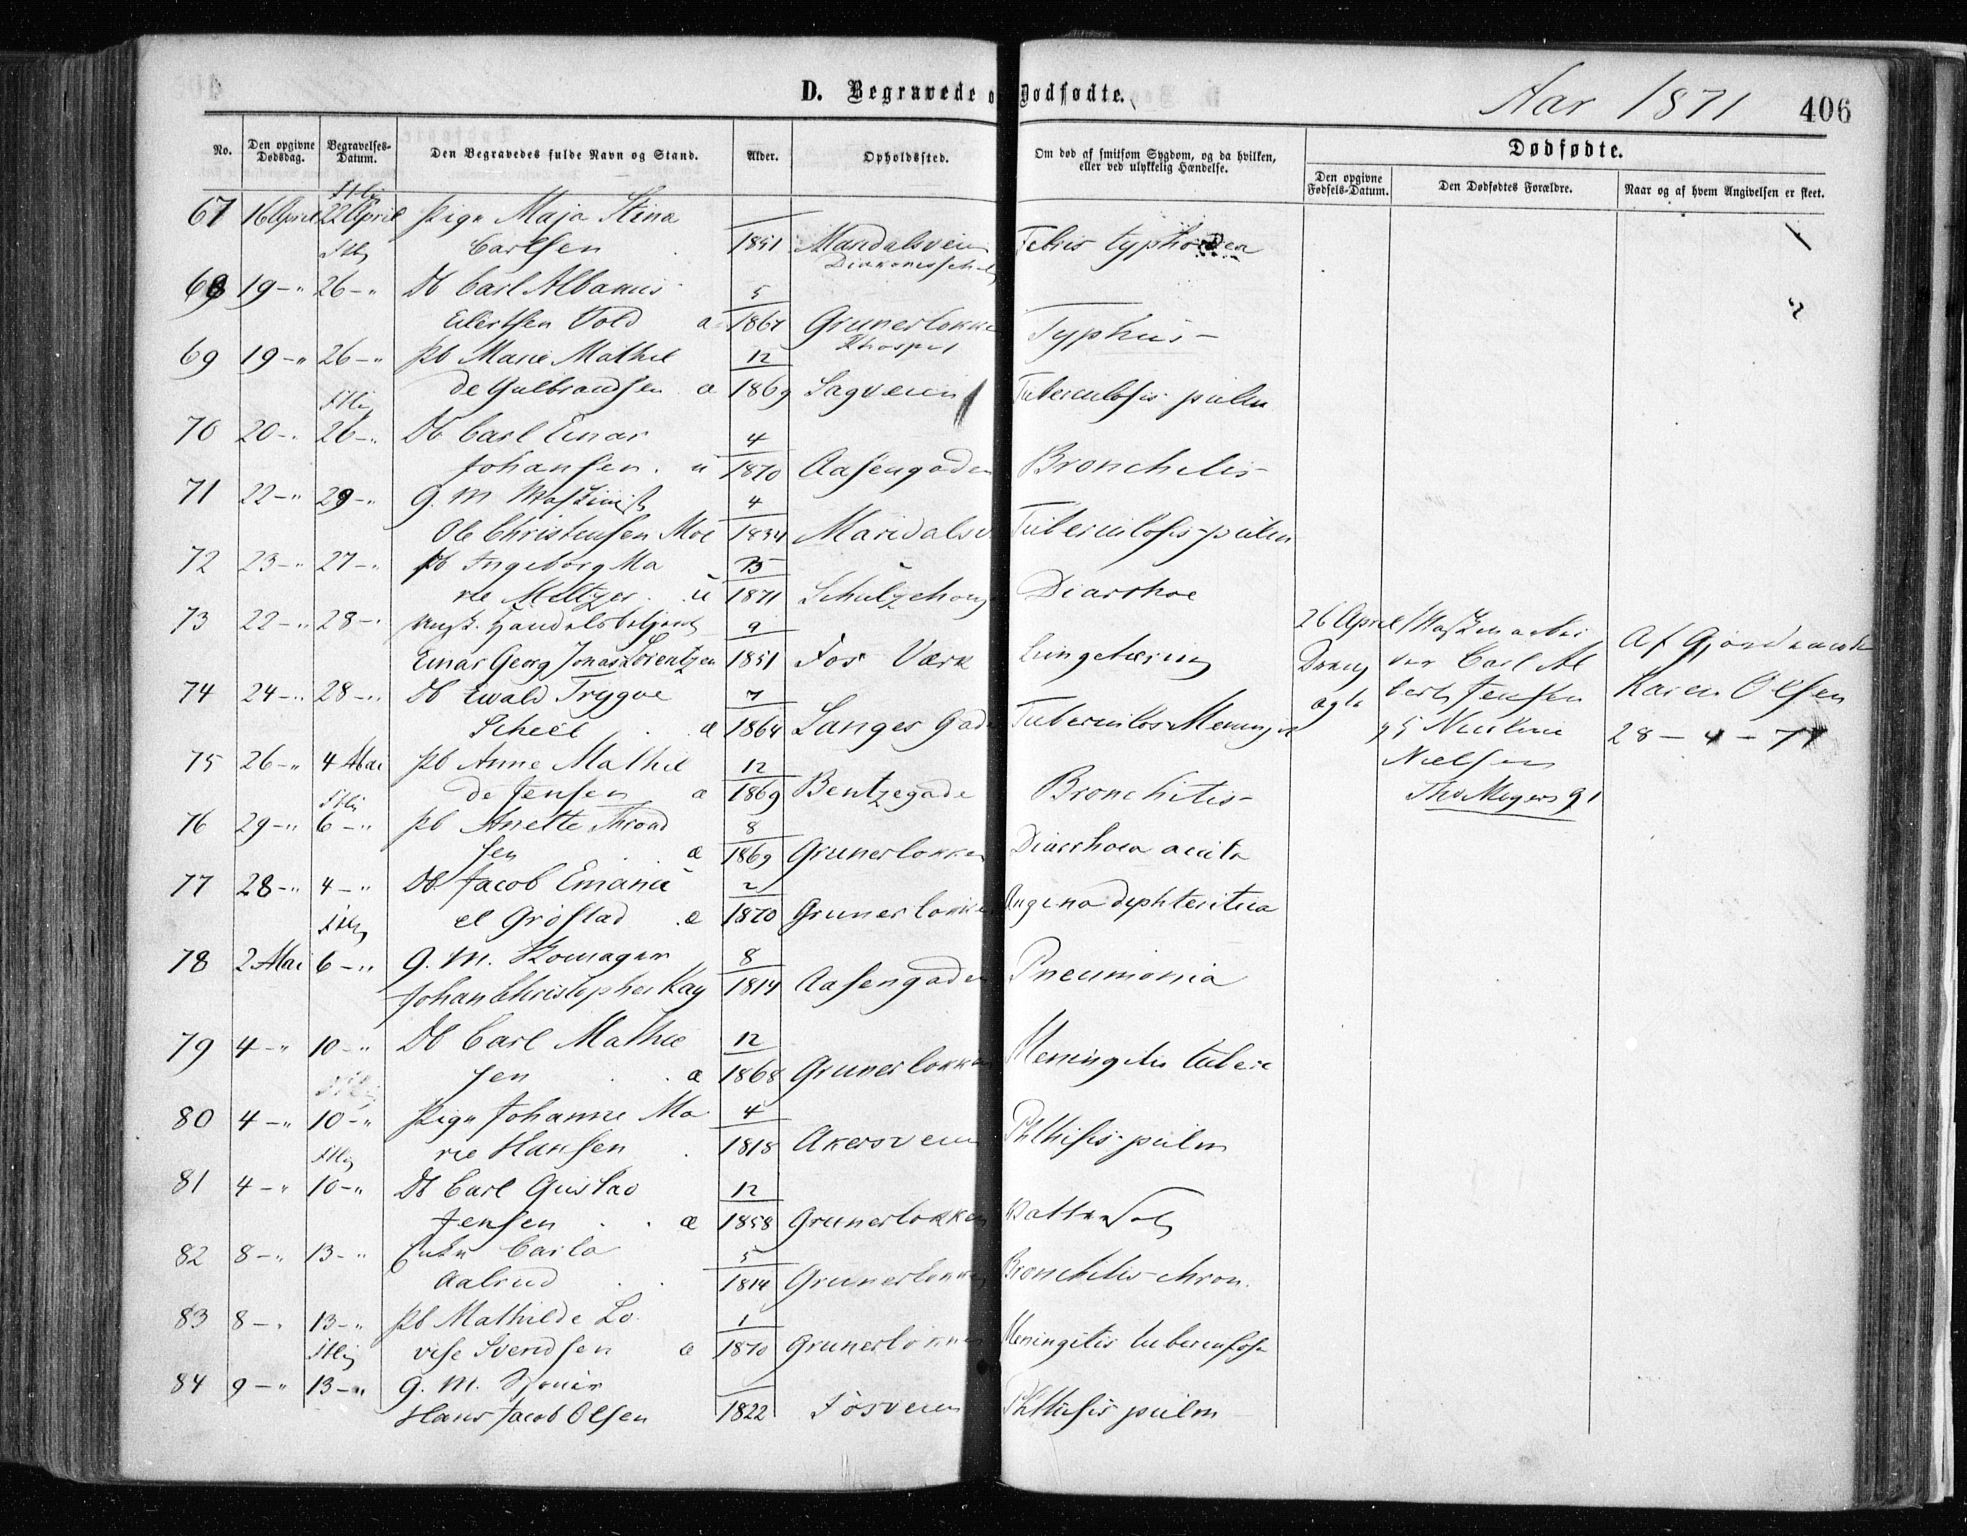 D. Begravede o
Dødfødte.
Aar 1871
406
No.
Den opgivne Dødsdag.
Begravelses-Datum.
Den Begravedes fulde Navn og Stand.
Alder.
Opholdssted.
Om død af smitsom Sygdom, og da hvilken, eller ved ulykkelig Hændelse.
Dødfødte.
Den opgivne Fødsels-Datum.
Den Dødfødtes Forældre.
Naar og af hvem Angivelsen er skeet.
67 16 April 22 April Pige Maja Stina
Carlsen 1851 Febris typhoidea
68 19 -" 26 -" Db Carl Albanus 5
Eilertsen Vold a 1867 Grunerløkken Typhus
69 19 -" 26 -" Pb Marie Mathil 12
de Gulbrandsen a 1869 Sagveien Tuberculosis pulm
70 20 -" 26 -" Db Carl Einar 4
Johansen u 1870 Aasengaden Bronchitis
71 22 -" 29 -" G. M. Maskinist 4
Ole Christensen Moe 1834 Maridalsv Tuberculosis pulm
72 23 -" 27 -" Pb Ingeborg Ma 15
rie Meltzer u 1871 Diarrhoe
73 22 -" 28 -" Ungk. Handelsbetjent 9
Einar Georg Jonas Lorentzen 1851 Fos Værk Lungetæring
74 24 -" 28 -" Db Ewald Trygve 7
Scheel a 1864 Langes Gade
75 26 -" 4 Mai Pb Anne Mathil 12
de Jensen a 1869 Bentzegade Bronchitis
76 29 -" 6 -" Pb Anette Thrond 8
sen a 1869 Grunerløkken Diarrhoea acuta
77 28 -" 4 -" Db Jacob Emanu 2
el Grøstad æ 1870 Grunerløkken Angina diphteritica
78 2 Mai 6 -" G. M. Skomager 8
Johan Christopher Kay 1814 Aasengaden Pneumonia
79 4 -" 10 -" Db Carl Mathie 12
sen a 1868 Grunerløkken
80 4 -" 10 -" Pige Johanne Ma 4
rie Hansen 1818 Akersveien Phthisis pulm
81 4 -" 10 -" Db Carl Gustav 12
Jensen æ 1858 Grunerløkken
82 8 -" 13 -" Enke Carla 5
Aalrud 1814 Grunerløkken Bronchitis chron.
83 8 -" 13 -" Pb Mathilde Lo 1
vise Svendsen a 1870 Grunerløkken Meningitis tuberculosa
84 9 -" 13 -" G. M.
Hans Jacob Olsen 1822 Fosveien Phthisis pulm
26 April
Dreng
ægte
Maskinarbei
der Carl Al
bert Jensen
Nielsen
Ths Meyers g 1
Af Gjordemoder
Karen Olsen
28 - 4 - 71